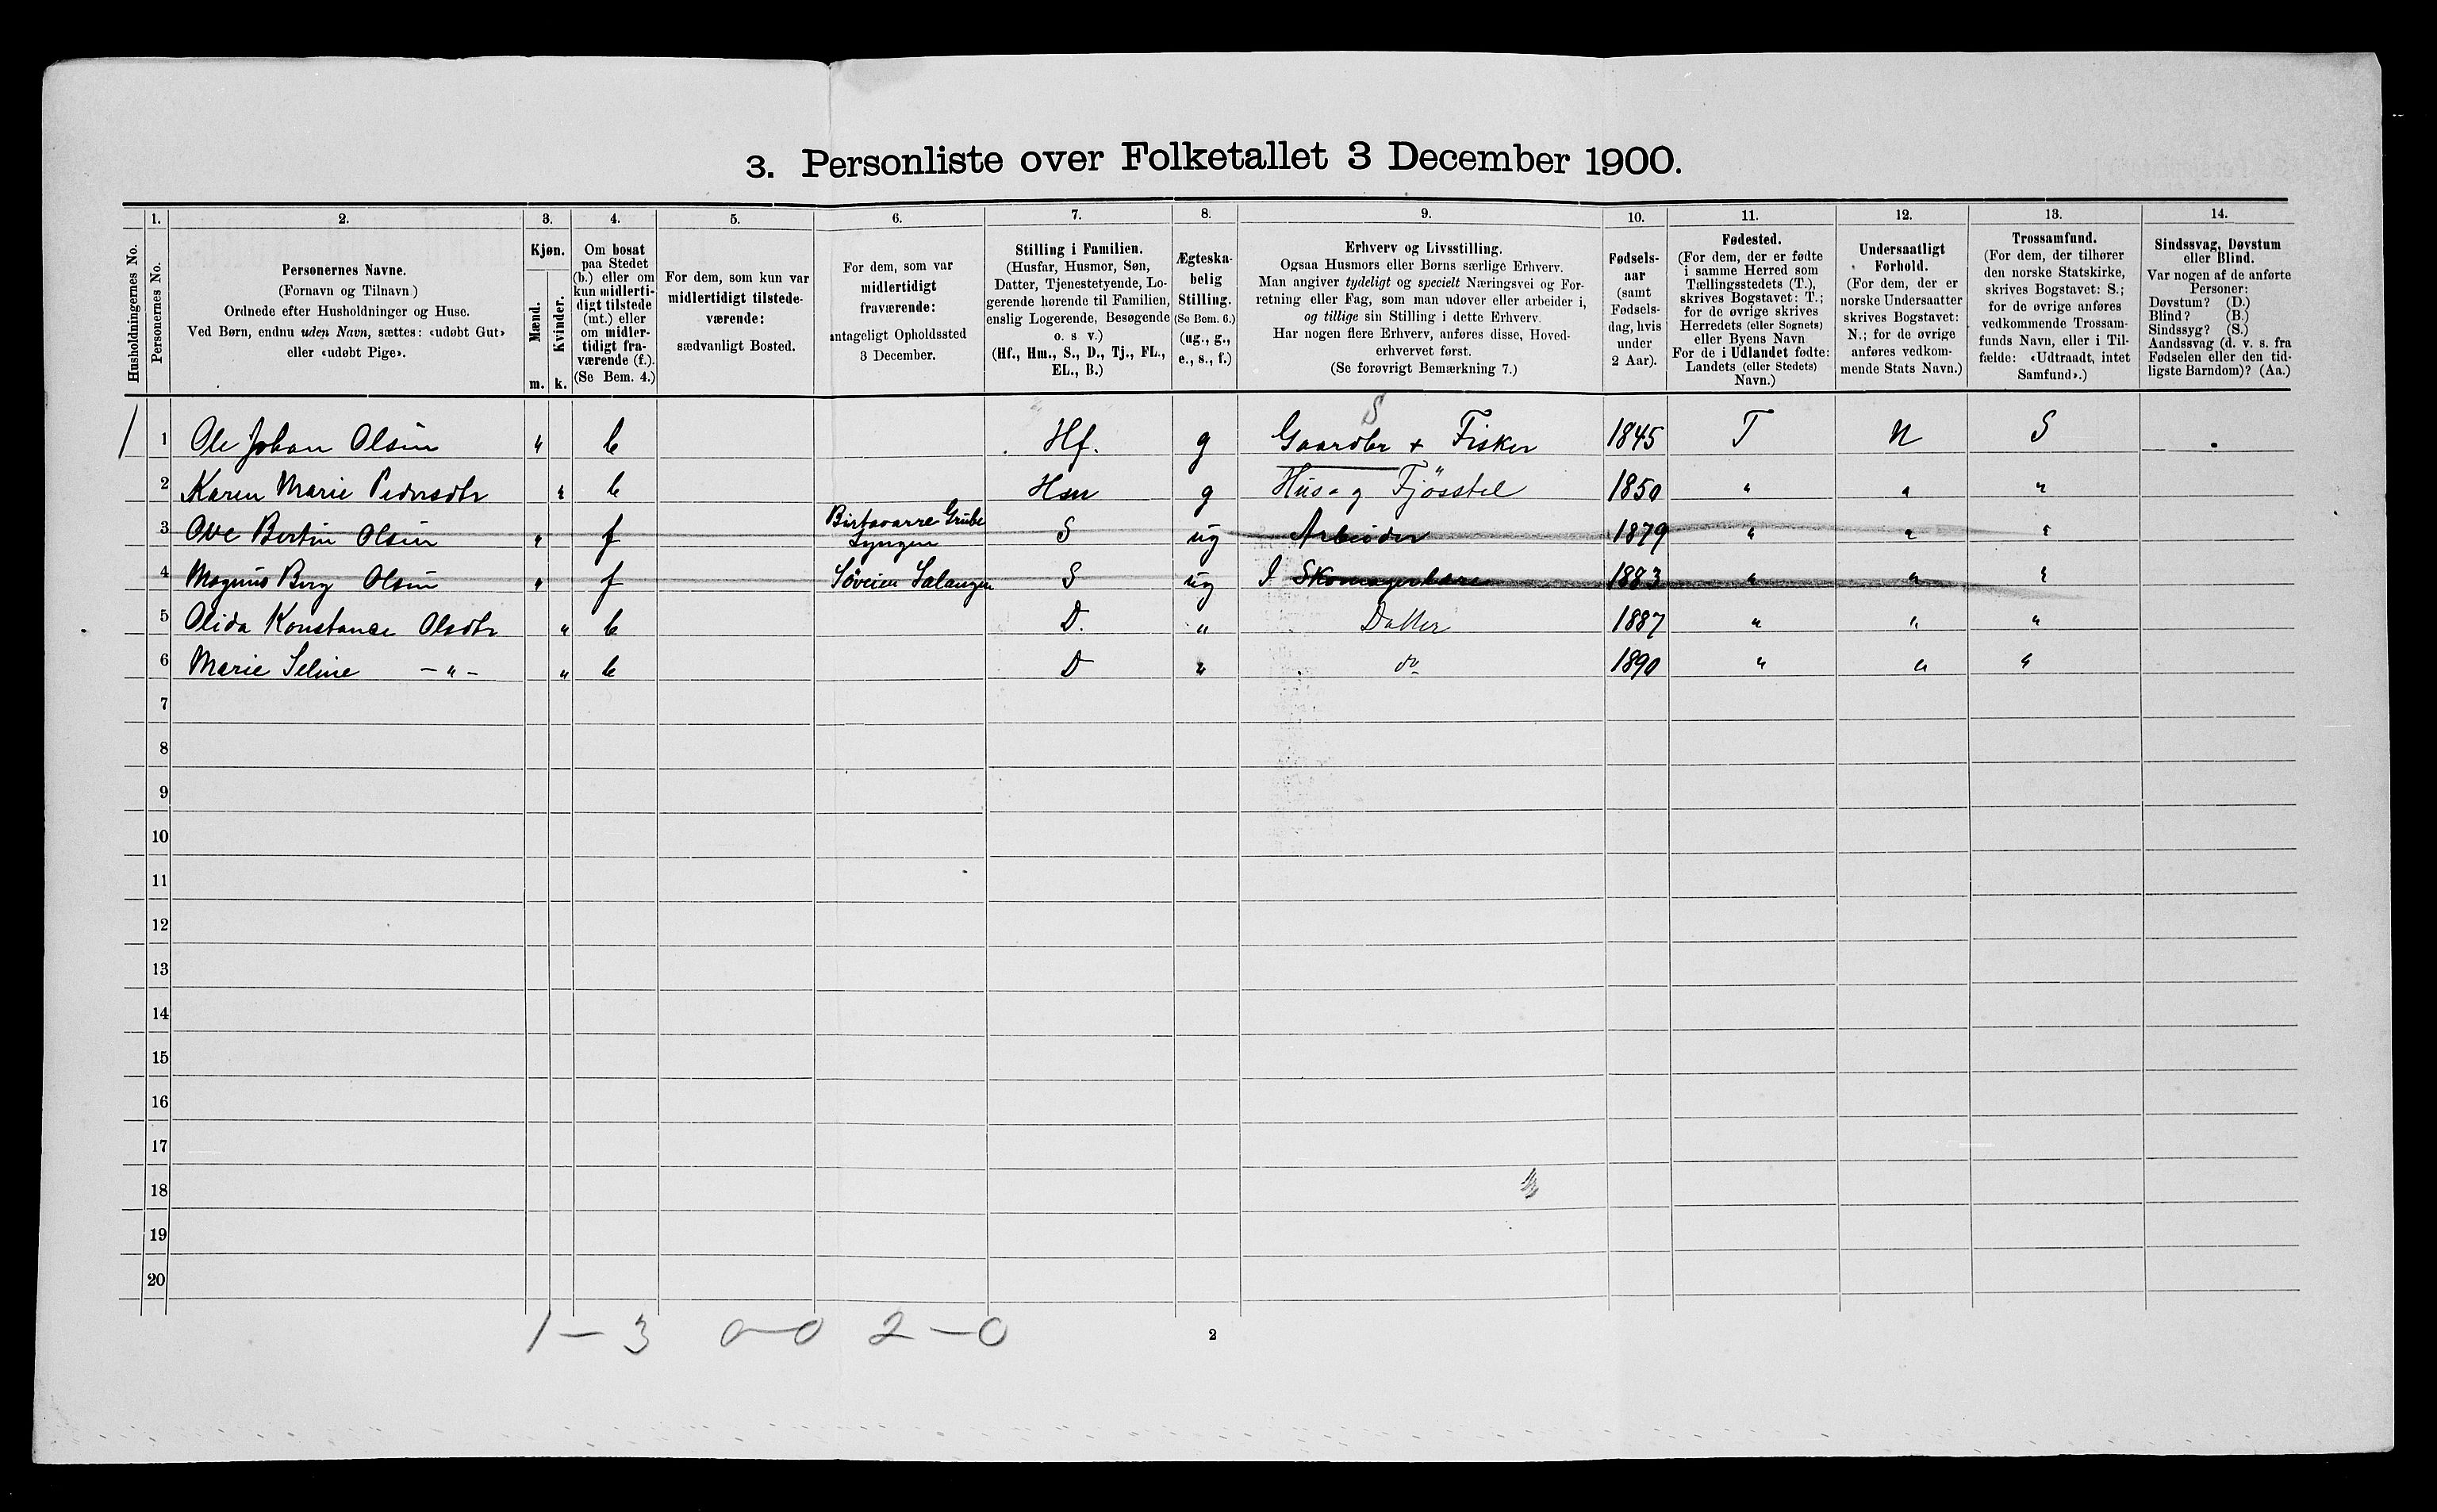 3. Personliste over Folketallet 3 December 1900.
Husholdningernes No.
1. Personernes No.
2. Personernes Navne.
(Fornavn og Tilnavn)
Ordnede efter Husholdninger og Huse.
Ved Børn, endnu uden Navn, sættes: «udøbt Gut»
eller «udøbt Pige».
3. Kjøn.
Mænd. m.
Kvinder. k.
4. Om bosat
paa Stedet
(b.) eller om
kun midlerti-
digt tilstede
(mt.) eller
om midler-
tidigt fra-
værende (f.).
(Se Bem. 4.)
5. For dem, som kun var
midlertidigt tilstede-
værende:
sædvanligt Bosted.
6. For dem, som var
midlertidigt
fraværende:
antageligt Opholdssted
3 December.
7. Stilling i Familien.
(Husfar, Husmor, Søn,
Datter, Tjenestetyende, Lo-
gerende hørende til Familien,
enslig Logerende, Besøgende
o. s v.)
(Hf., Hm., S., D., Tj., FL.,
EL., B.)
8. Ægteska-
belig
Stilling.
(Se Bem. 6.)
(ug., g.,
e., s., f.)
9. Erhverv og Livsstilling.
Ogsaa Husmors eller Børns særlige Erhverv.
Man angiver tydeligt og specielt Næringsvei og For-
retning eller Fag, som man udøver eller arbeider i,
og tillige sin Stilling i dette Erhverv.
Har nogen flere Erhverv, anføres disse, Hoved-
erhvervet først.
(Se forøvrigt Bemærkning 7.)
10. Fødsels-
aar
(samt
Fødsels-
dag, hvis
under
2 Aar).
11. Fødested.
(For dem, der er fødte
i samme Herred som
Tællingsstedets (T.),
skrives Bogstavet: T.;
for de øvrige skrives
Herredets (eller Sognets)
eller Byens Navn
For de i Udlandet fødte:
Landets (eller Stedets)
Navn.)
12. Undersaatligt
Forhold.
(For dem, der er
norske Undersaatter
skrives Bogstavet:
N.; for de øvrige
anføres vedkom-
mende Stats Navn.)
13. Trossamfund.
(For dem, der tilhører
den norske Statskirke,
skrives Bogstavet: S.;
for de øvrige anføres
vedkommende Trossam-
funds Navn, eller i Til-
fælde: «Udtraadt, intet
Samfund».)
14. Sindssvag, Døvstum
eller Blind.
Var nogen af de anførte
Personer:
Døvstum? (D.)
Blind? (B.)
Sindssyg? (S.)
Aandssvag (d. v. s. fra
Fødselen eller den tid-
ligste Barndom)? (Aa.)
S
1 1 Ole Johan Olsen " b Hf. g Gaardbr + Fisker 1845 T N S
2 Karen Marie Pedersdtr " b Hm g Hus og Fjösstel 1850 " " "
3 Ove Bertin Olsen " f Birtavarre Grube Lyngen S ug Arbeider 1879 " " "
4 Magnus Berg Olsen " f Söveien Salangen S ug I Skomagerlære 1883 " " "
5 Alida Konstanse Olsdtr " b D. " Datter 1887 " " "
6 Marie Seline - " - " b D " do 1890 " " "
7
8
9
10
11
12
13
14
15
16
17
18
19
20
1 - 3 0-0 2-0
2